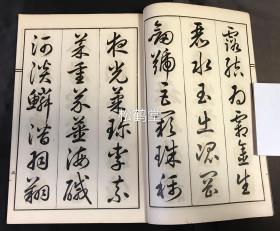 露結為霜金生
麗水玉出崑岡
劍號巨闕珠稱
夜光菓珍李柰
菜重芥薑海鹹
河淡鱗潛羽翔
弘鹤堂